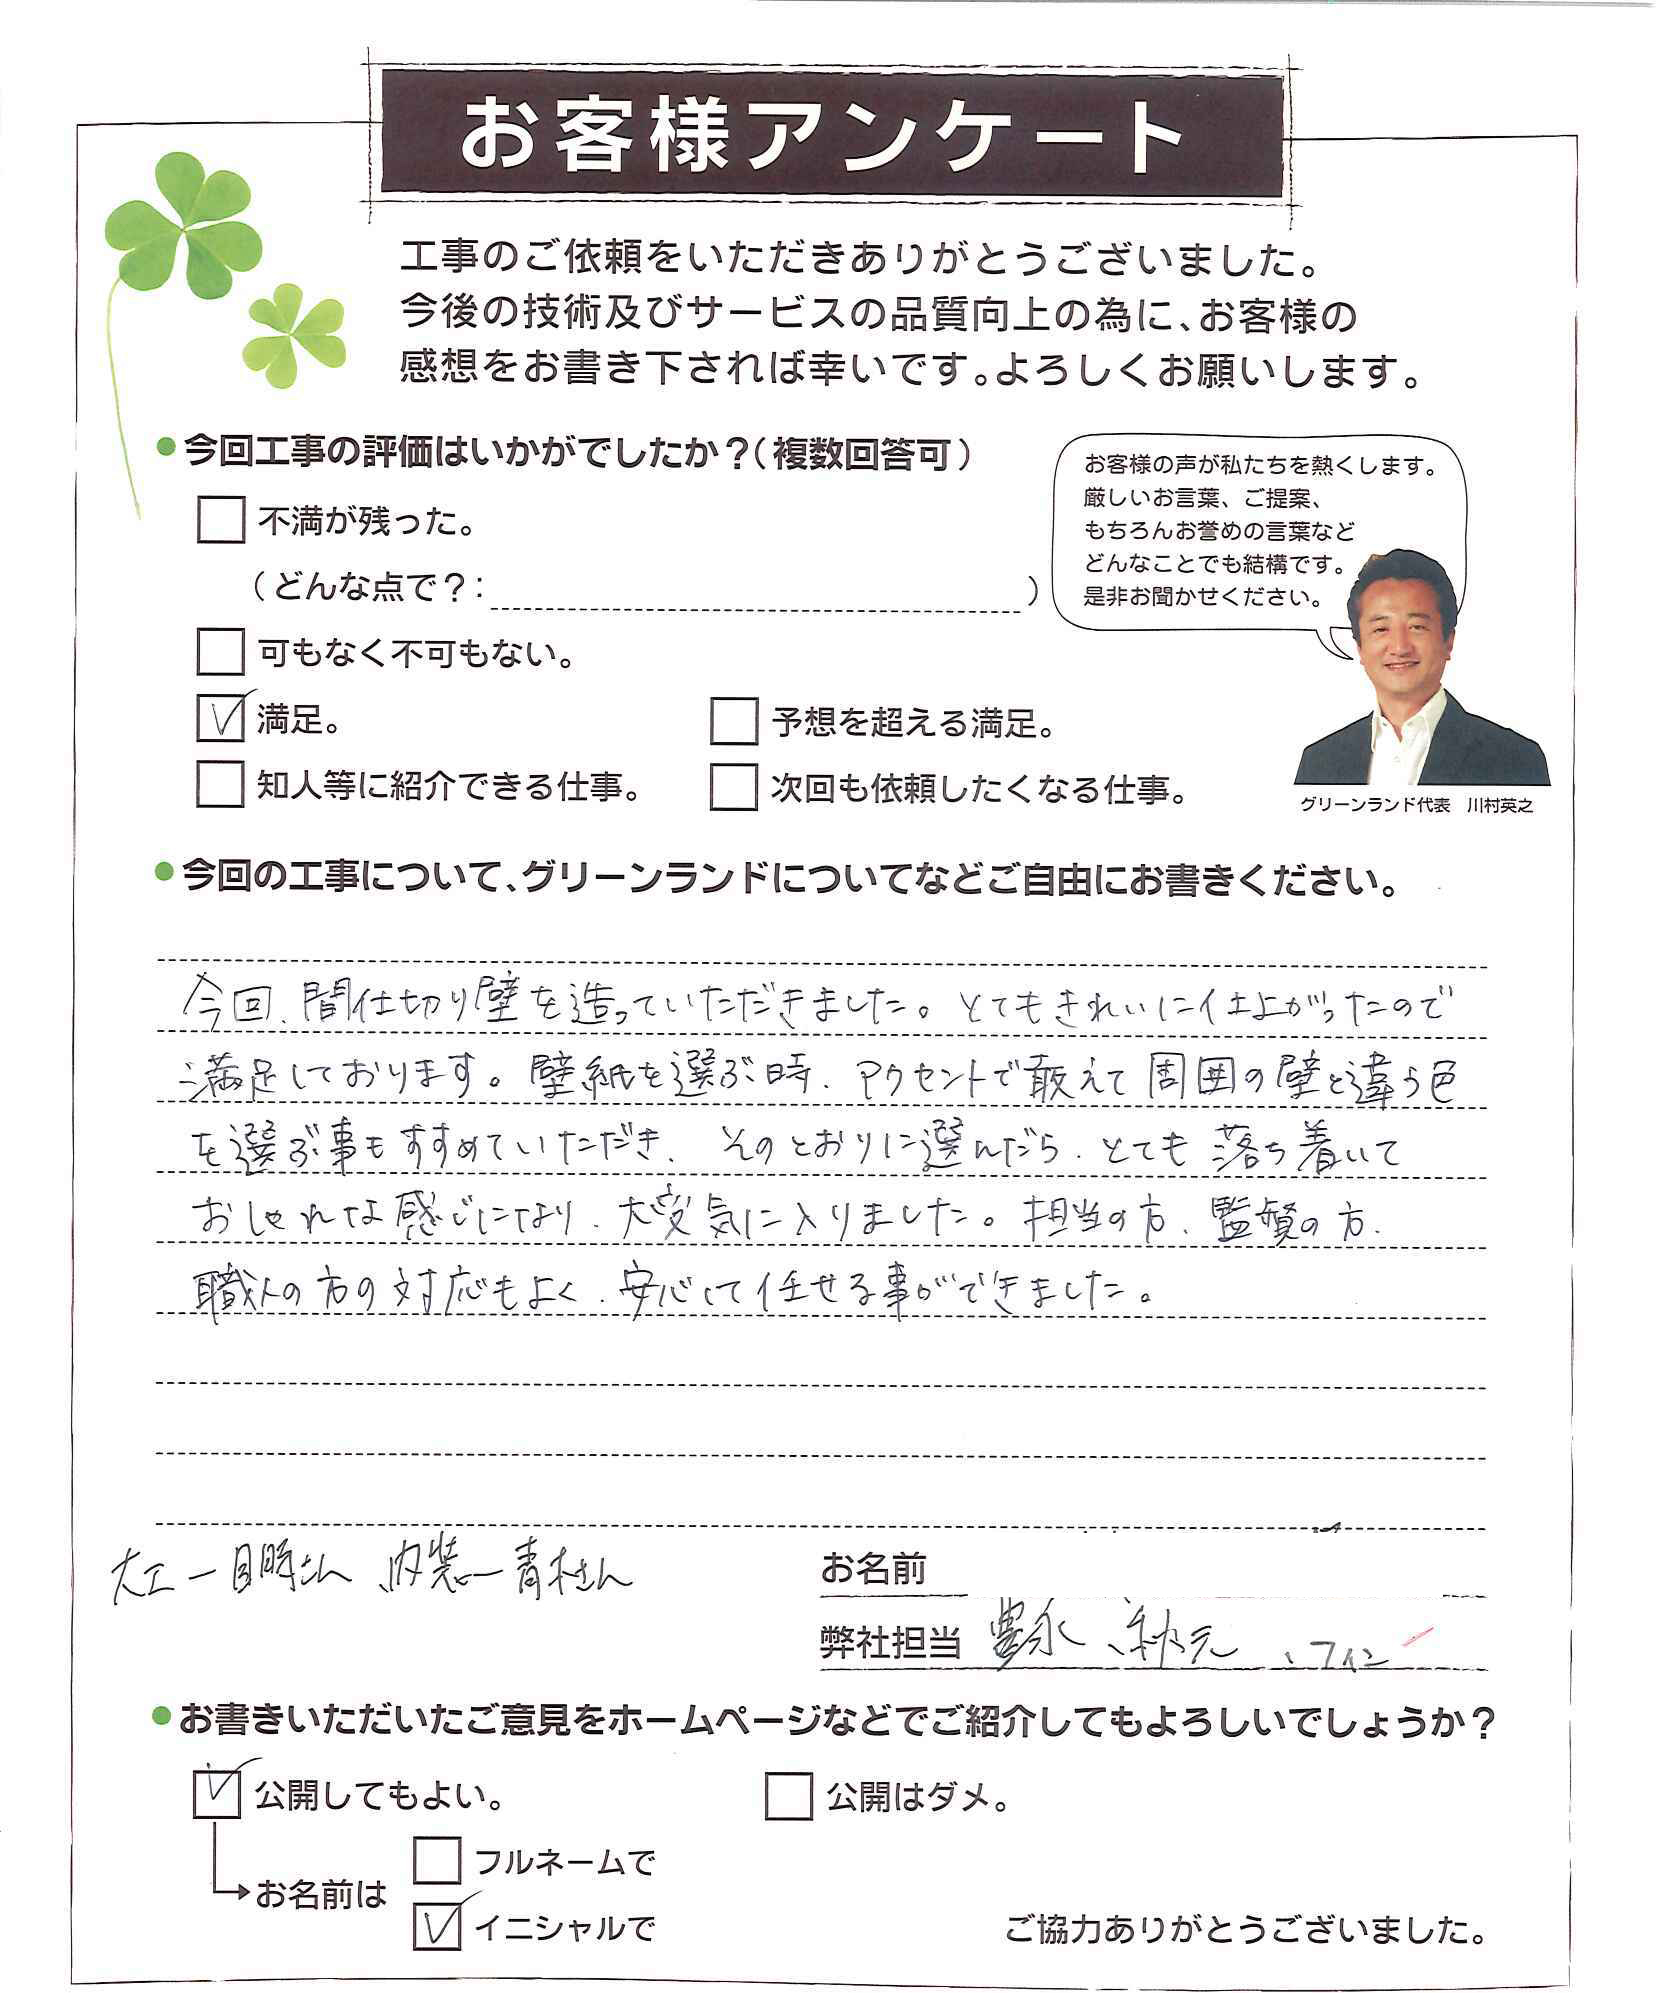 お客様アンケート
工事のご依頼をいただきありがとうございました。
今後の技術及びサービスの品質向上の為に、お客様の
感想をお書き下されば幸いです。よろしくお願いします。
●今回工事の評価はいかがでしたか？（複数回答可）
不満が残った。
（どんな点で？：　）
可もなく不可もない。
満足。
予想を超える満足。
知人等に紹介できる仕事。
次回も依頼したくなる仕事。
お客様の声が私たちを熱くします。
厳しいお言葉、ご提案、
もちろんお誉めの言葉など
どんなことでも結構です。
是非お聞かせください。
グリーンランド代表　川村英之
●今回の工事について、グリーンランドについてなどご自由にお書きください。
今回、間仕切り壁を造っていただきました。とてもきれいに仕上がったので
満足しております。壁紙を選ぶ時、アクセントで敢えて周囲の壁と違う色
を選ぶ事もすすめていただき、そのとおりに選んだら、とても落ち着いて
おしゃれな感じになり、大変気に入りました。担当の方、監督の方、
職人の方の対応もよく、安心して任せる事ができました。
大工ー目時さん　内装ー青木さん
お名前
弊社担当　豊永、秋元、フィン
●お書きいただいたご意見をホームページなどでご紹介してもよろしいでしょうか？
公開してもよい。
公開はダメ。
お名前は
フルネームで
イニシャルで
ご協力ありがとうございました。